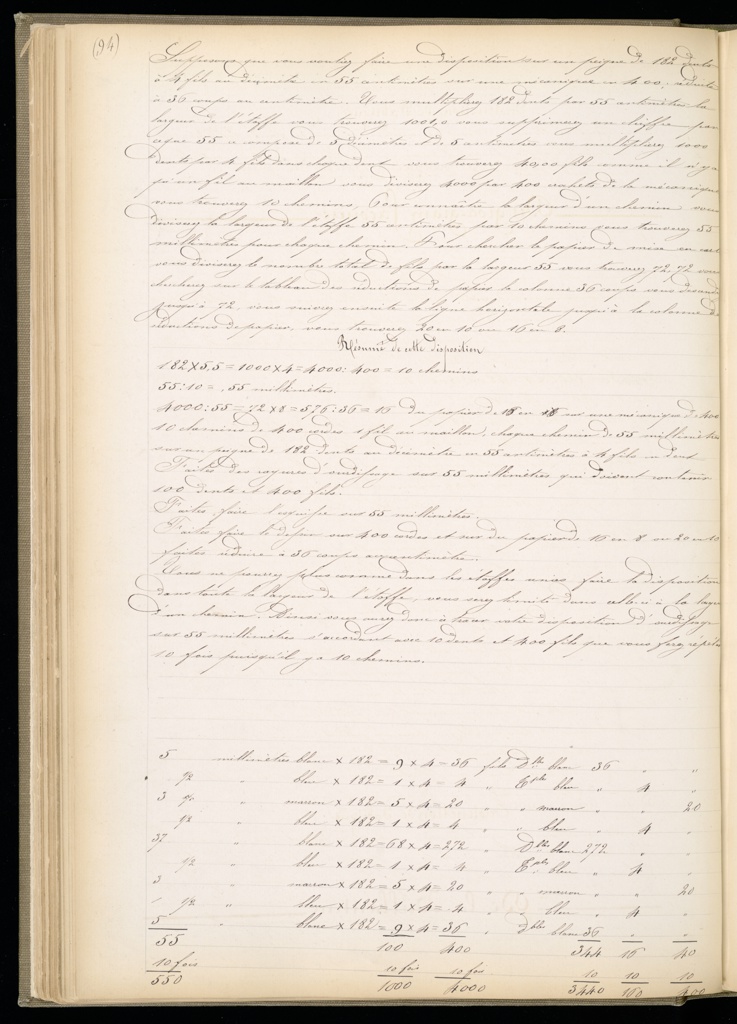 (94)
Supposons que vous vouliez faire une disposition sur un peigne de 182 dents
à 4 fils au décimètre en 55 centimètres sur une mécanique en 400, réduite
à 36 coups au centimètre. Vous multipliez 182 dents par 55 centimètres la
largeur de l'étoffe vous trouverez 1001,0 vous supprimerez un chiffre parce
que 55 se compose de 5 décimètres et de 5 centimètres vous multipliez 1000
dents par 4 fils dans chaque dent vous trouverez 4000 fils comme il n'y a
qu'un fil au maillon vous divisez 4000 par 400 crochets de la mécanique
vous trouverez 10 chemins, Pour connaître la largeur d'un chemin vous
divisez la largeur de l'étoffe 55 centimètres par 10 chemins vous trouverez 55
millimètres pour chaque chemin. Pour chercher le papier de mise en carte
vous diviserez le nombre total de fils par la largeur 55 vous trouverez 72,72 vous
chercherez sur le tableau des réductions de papier la colonne 36 coups vous descendez
jusqu'à 72, vous suivez ensuite la ligne horizontale jusqu'à la colonne de
réductions de papier, vous trouverez 20 en 10 ou 16 en 8.
Résumé de cette disposition
182 x 5,5 = 1000 x 4 = 4000 : 400 = 10 chemins
55 : 10 = ,55 millimètres.
4000 : 55 = 72 x 8 = 576 : 36 = 16 du papier de 16 en 18 sur une mécanique de 400
10 chemins de 400 cordes 1 fil au maillon, chaque chemin de 55 millimètres
sur un peigne de 182 dents au décimètre en 55 centimètres à 4 fils en dent
Faites des rayures d'ourdissage sur 55 millimètres qui doivent contenir
100 dents et 400 fils.
Faites faire l'esquisse sur 55 millimètres.
Faites faire le dessin sur 400 cordes et sur du papier de 16 en 8 ou 20 en 10
faites réduire à 36 coups au centimètre.
Vous ne pouvez plus comme dans les étoffes unies faire la disposition
dans toute la largeur de l'étoffe, vous êtes limité dans celle-ci à la largeur
d'un chemin. Ainsi vous avez donc à faire votre disposition d'ourdissage
sur 55 millimètres s'accordant avec 10 dents et 400 fils que vous ferez répéter
10 fois puisqu'il y a 10 chemins.
5 millimètres blanc x 182 = 9 x 4 = 36 fils Dble blanc 36 " "
1/2 " bleu x 182 = 1 x 4 = 4 " Ctple bleu " 4 "
3 1/2 " marron x 182 = 5 x 4 = 20 " " marron " " 20
1/2 " bleu x 182 = 1 x 4 = 4 " " bleu " 4 "
37 " blanc x 182 = 68 x 4 = 272 " Dble blanc 272 " "
1/2 " bleu x 182 = 1 x 4 = 4 " Ctple bleu " 4 "
3 " marron x 182 = 5 x 4 = 20 " " marron " " 20
1/2 " bleu x 182 = 1 x 4 = 4 " " bleu " 4 "
5 " blanc x 182 = 9 x 4 = 36 " Dble blanc 36 " "
55 100 400 344 16 40
10 fois 10 fois 10 fois 10 10 10
550 1000 4000 3440 160 400